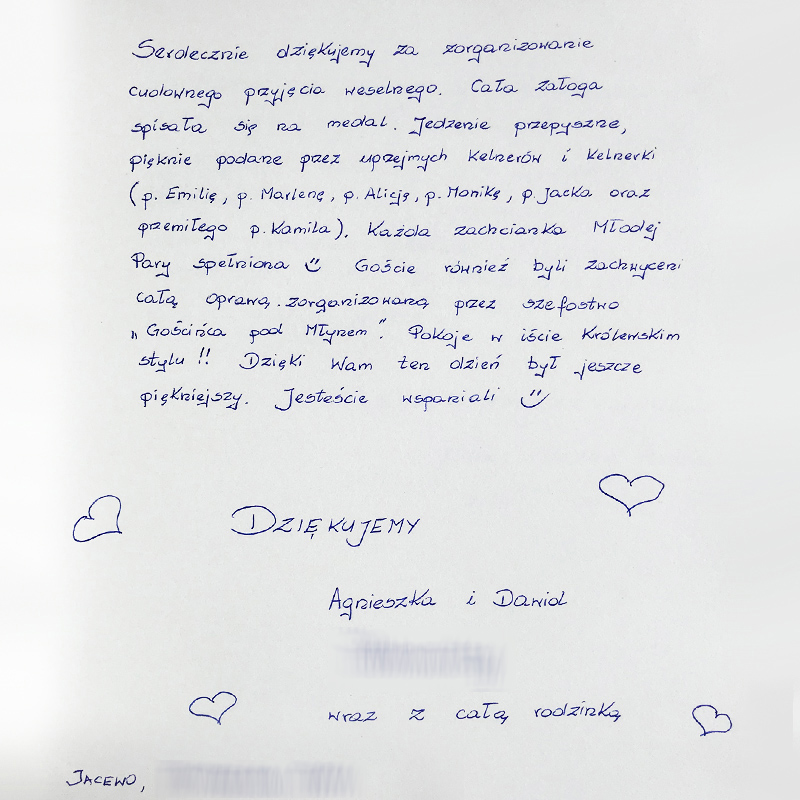 Serdecznie dziękujemy za zorganizowanie
cudownego przyjęcia weselnego. Cała załoga
spisała się na medal. Jedzenie przepyszne,
pięknie podane przez uprzejmych kelnerów i kelnerki
(p. Emilię, p. Marlenę, p. Alicję, p. Monikę, p. Jacka oraz
przemiłego p. Kamila). Każda zachcianka Młodej
Pary spełniona
Goście również byli zachwyceni
całą oprawą zorganizowaną przez szefostwo
„Gościńca pod Młynem”. Pokoje w iście Królewskim
stylu !! Dzięki Wam ten dzień był jeszcze
piękniejszy. Jesteście wspaniali
DZIĘKUJEMY
Agnieszka i Dawid
wraz z całą rodzinką
JACEWO,